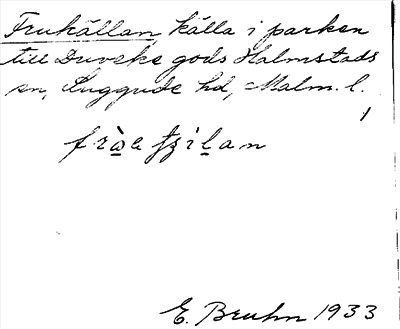 Frukällan, källa i parken
till Duveke gods Halmstads
sn, Luggude hd, Malm. l.
E. Bruhn 1933